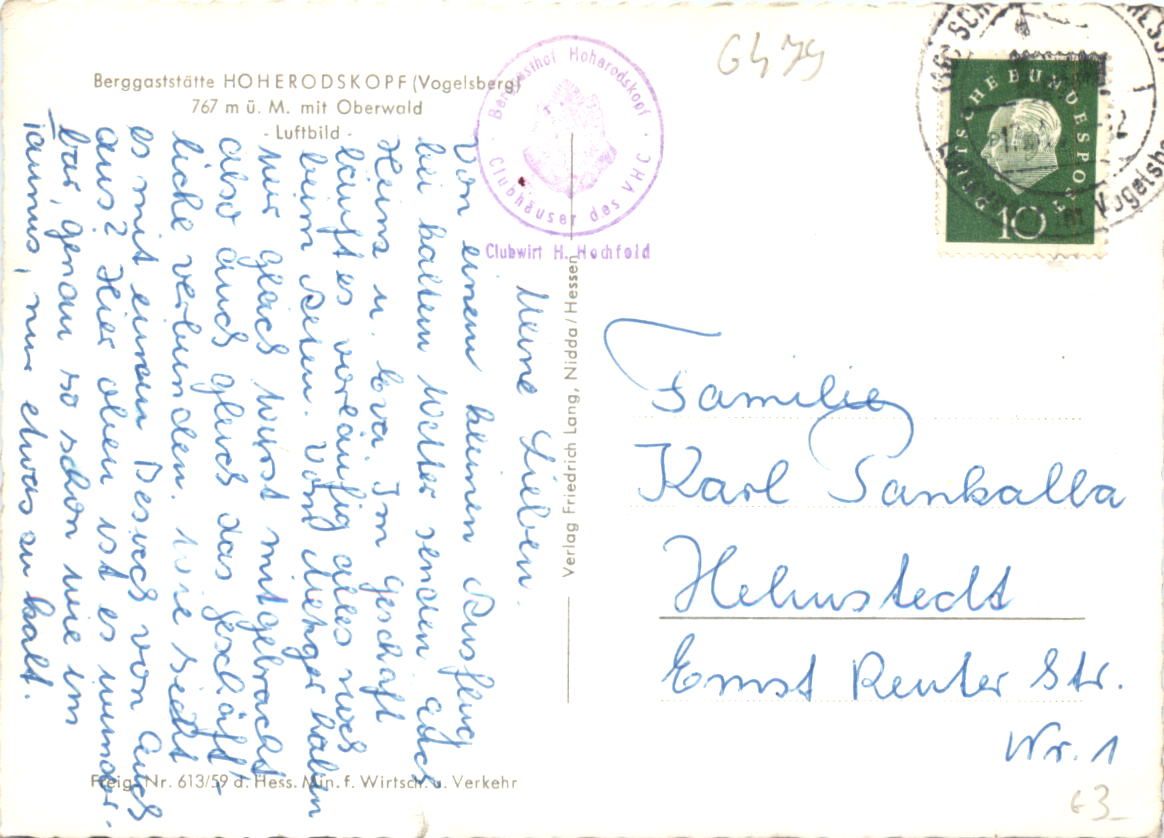 Berggaststätte HOHERODSKOPF (Vogelsberg)
767 m ü. M. mit Oberwald
- Luftbild -
Berggasthof Hoherodskopf
Clubhäuser des VHC
Clubwirt H. Hochfeld
G479
DEUTSCHE BUNDESPOST
10
Vogelsbe
Meine Lieben.
Von einem kleinen Ausflug
bei kaltem Wetter senden Euch
Heins u. Eva. Im Geschäft
läuft es vorläufig alles noch
beim Alten. Vom Metzger haben
wir gleich Wurst mitgebracht
also auch gleich das Geschäft-
liche verbunden. Wie sieht
es mit einem Besuch von Euch
aus? Hier oben ist es wunder-
bar, genau so schön wie im
Taunus, nur etwas zu kalt.
Verlag Friedrich Lang, Nidda/Hessen
Familie
Karl Sankalla
Helmstedt
Ernst Reuter Str.
Nr. 1
Freig. Nr. 613/59 d. Hess. Min. f. Wirtsch. u. Verkehr
€3_